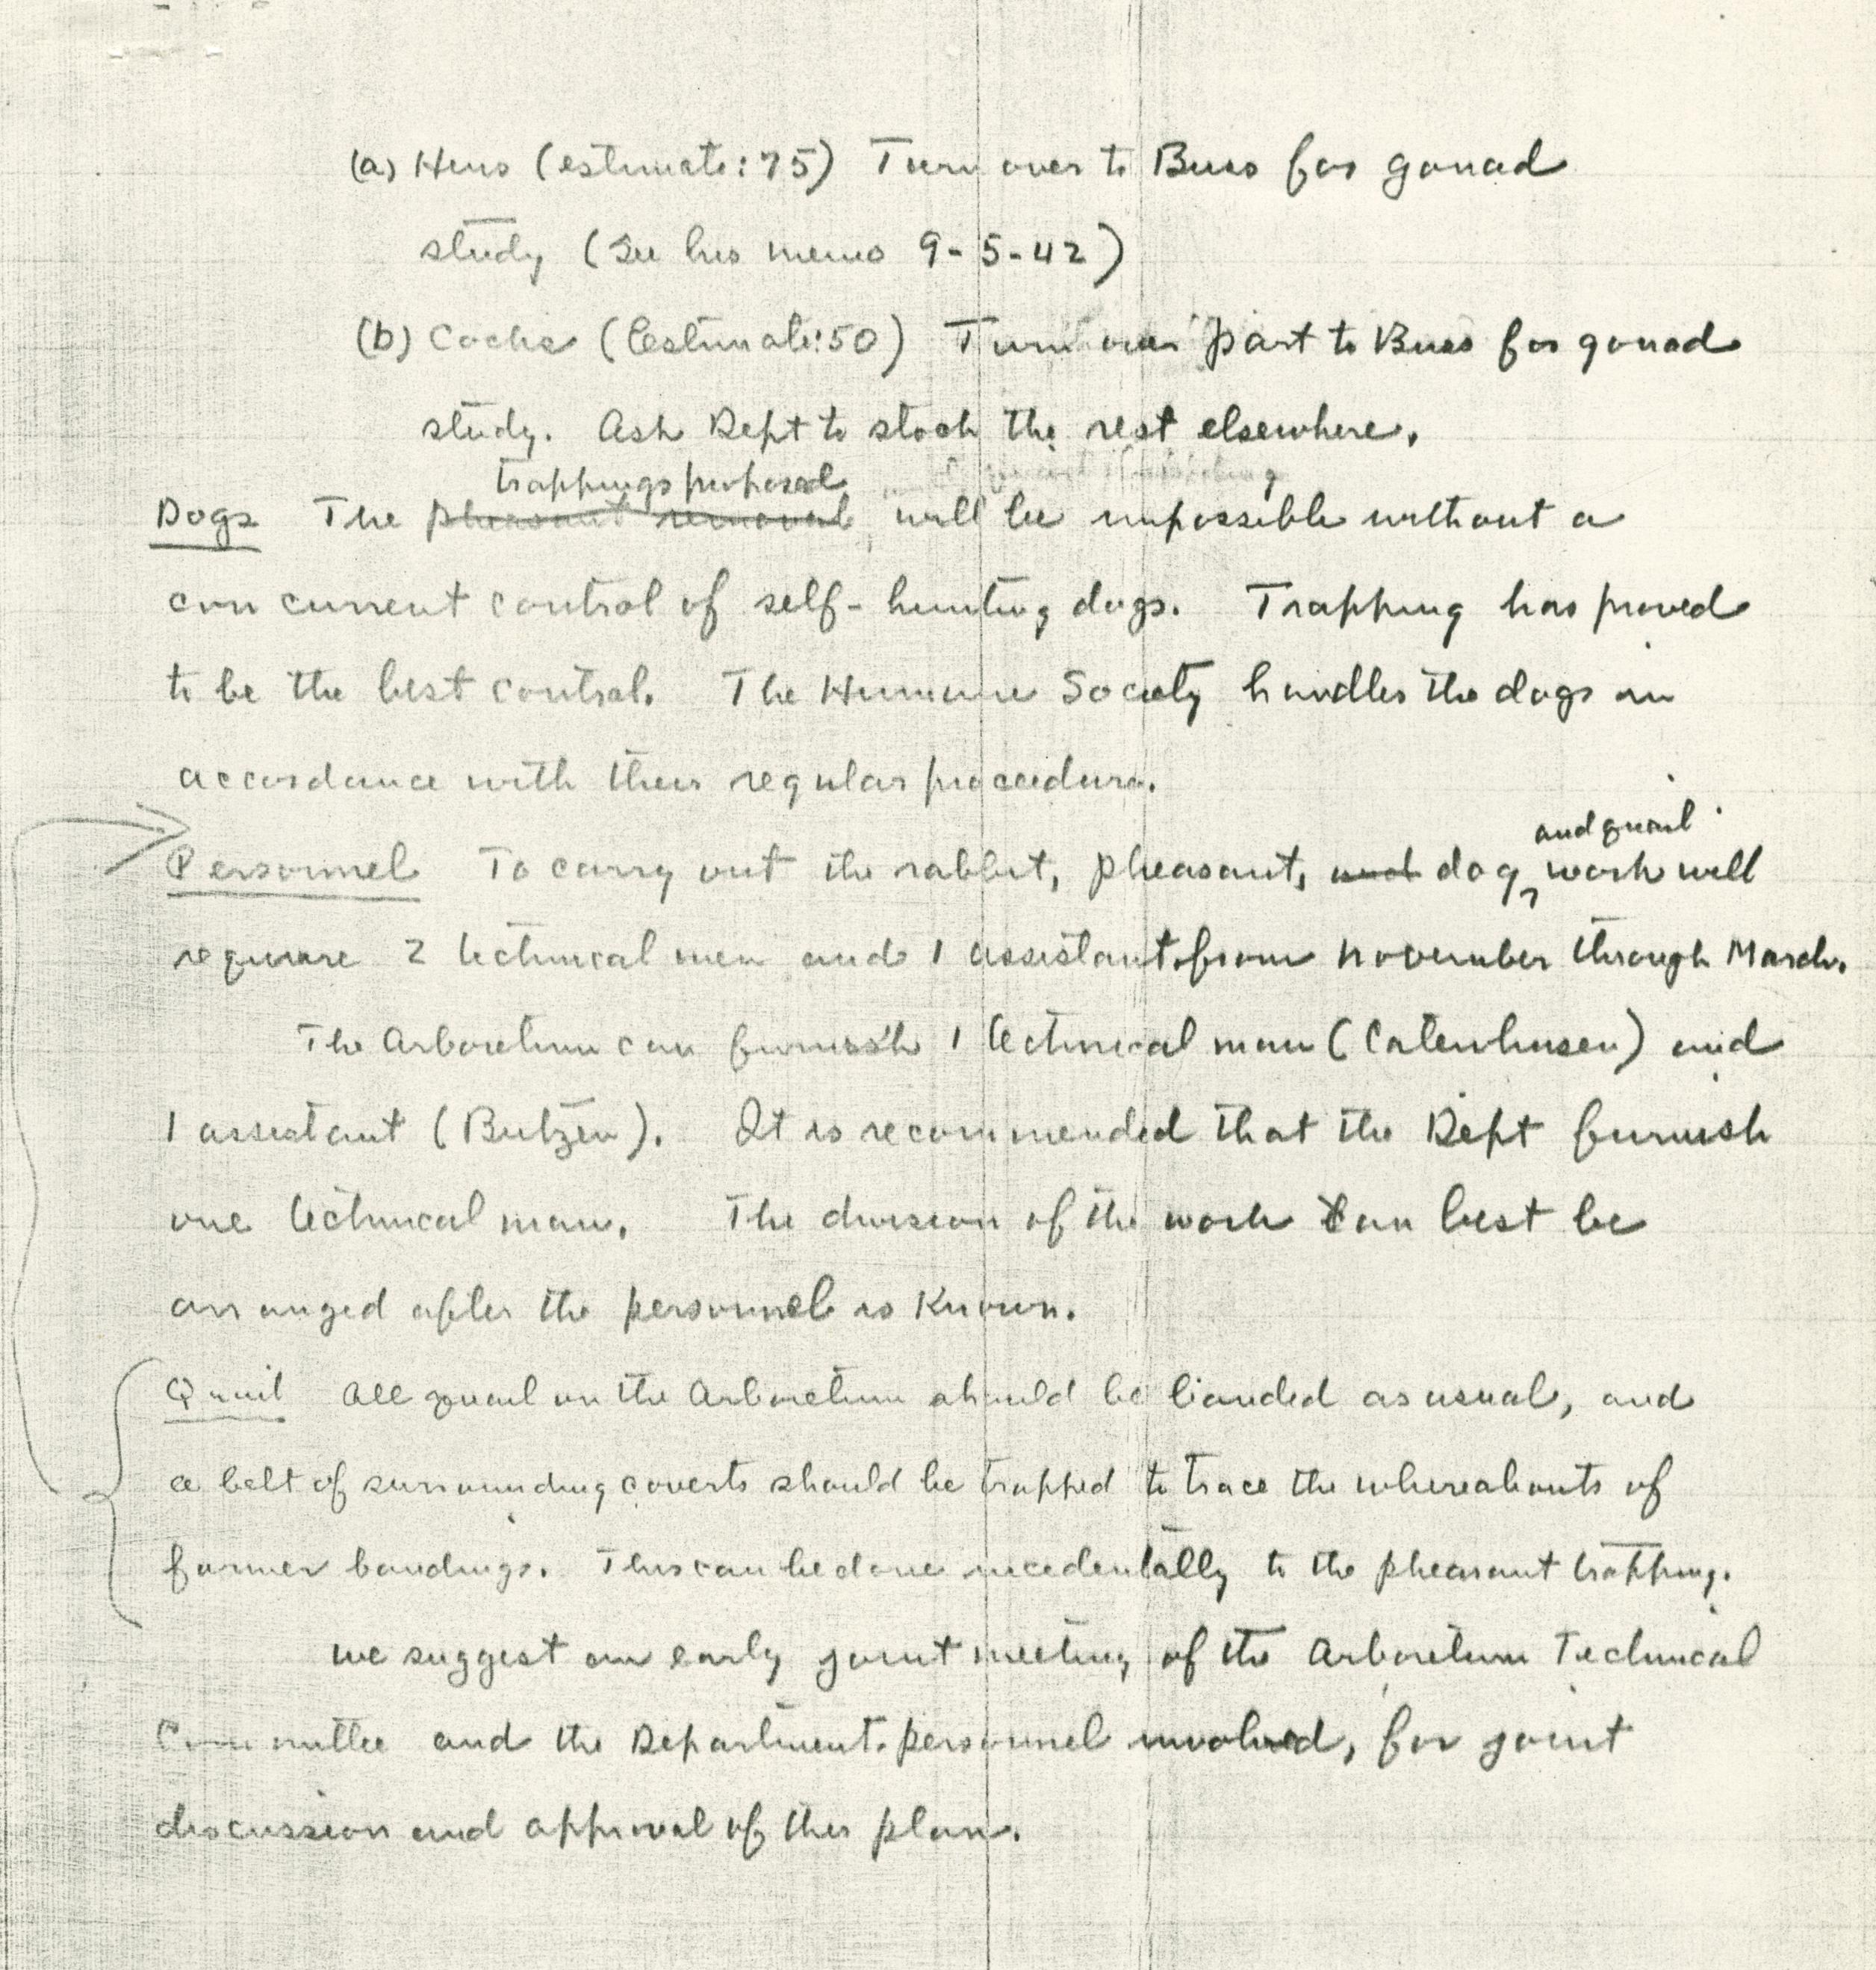 (a) Hens (estimate: 75) Turn over to Buss for gonad
study (See his memo 9-5-42)
(b) Cocks (Estimate: 50) Turn over part to Buss for gonad
study. Ask Dept to stock the rest elsewhere.
trappings proposed
Dogs The pheasant removal will be impossible without a
concurrent control of self-hunting dogs. Trapping has proved
to be the best control. The Humane Society handles the dogs in
accordance with their regular proceedure.
and quail
Personnel To carry out the rabbit, pheasant, and dog, work will
require 2 technical men and 1 assistant from November through March.
The Arboretum can furnish 1 technical man (Catenhusen) and
1 assistant (Butzen). It is recommended that the Dept furnish
one technical man. The division of the work can best be
arranged after the personnel is known.
Quail All quail on the Arboretum should be banded as usual, and
a belt of surrounding coverts should be trapped to trace the whereabouts of
former bandings. This can be done incedentally to the pheasant trapping.
We suggest an early joint meeting of the Arboretum Technical
Committee and the Department personnel involved, for joint
discussion and approval of this plan.